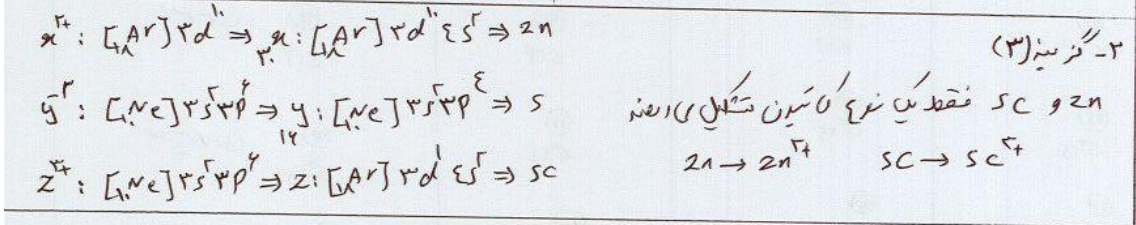 ۲- گزینه (۳)
x²⁺: [₁₈Ar] ۳d¹⁰ ⇒ ₃₀x: [₁₈Ar] ۳d¹⁰ ۴s² ⇒ zn
y²⁻: [₁₀Ne] ۳s² ۳p⁶ ⇒ ₁₆y: [₁₀Ne] ۳s² ۳p⁴ ⇒ s
z³⁺: [₁₀Ne] ۳s² ۳p⁶ ⇒ z: [₁₈Ar] ۳d¹ ۴s² ⇒ sc
zn و sc فقط یک نوع کاتیون تشکیل می‌دهند
zn → zn²⁺ sc → sc³⁺